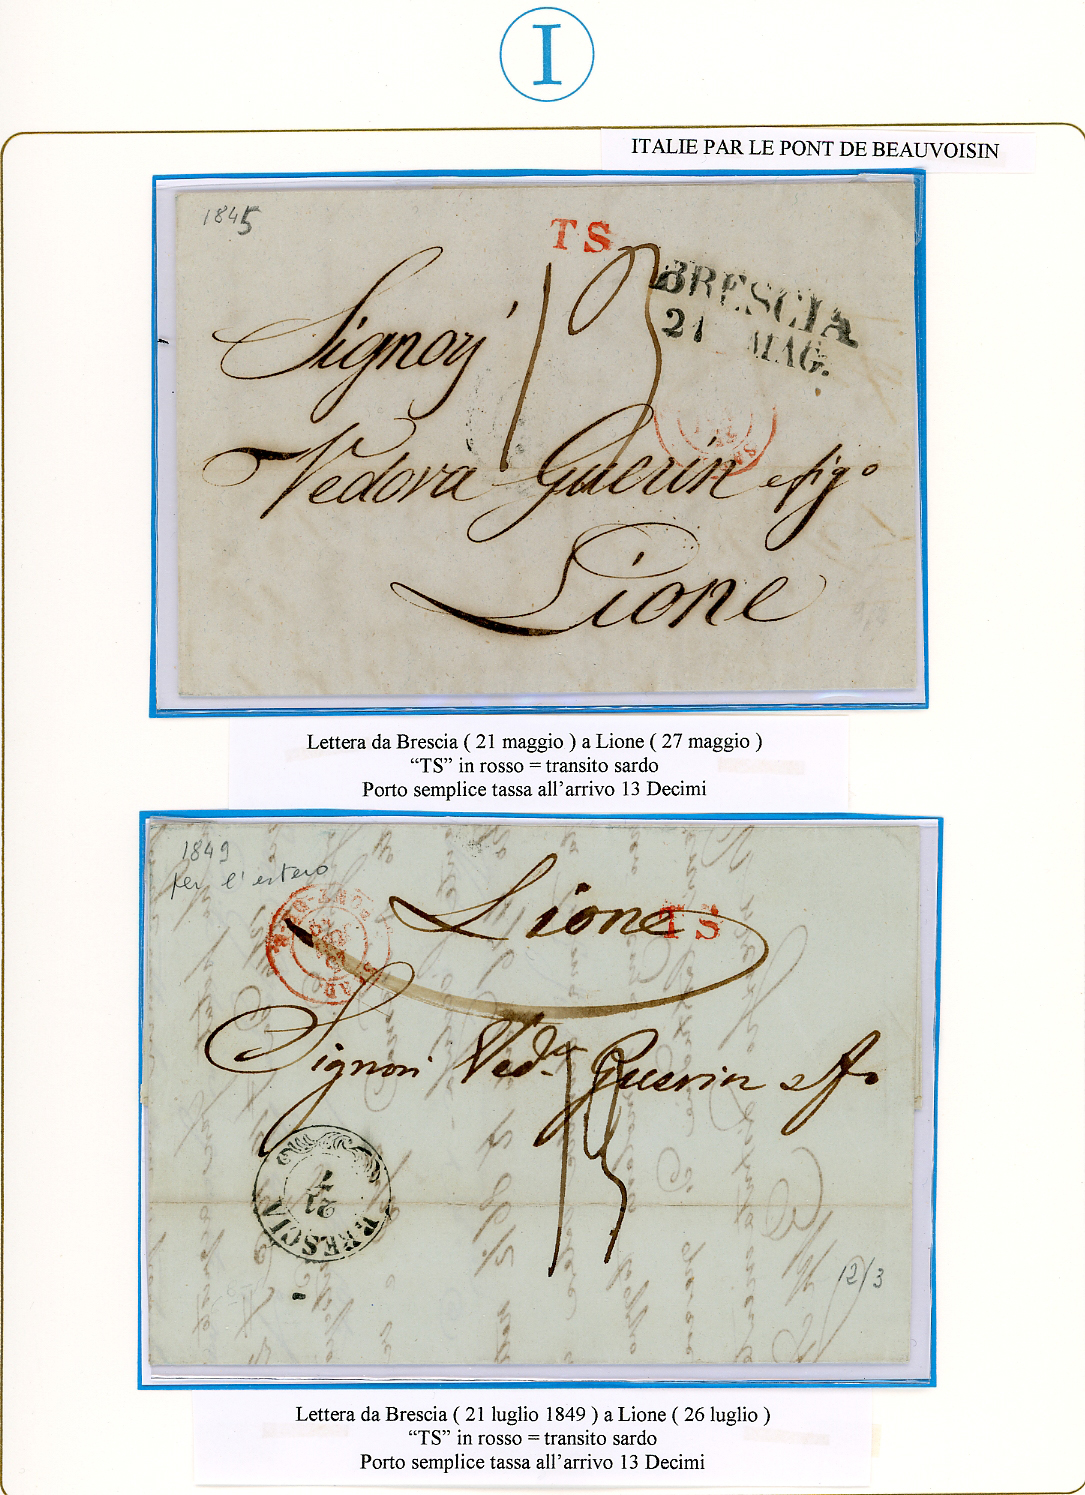 I
ITALIE PAR LE PONT DE BEAUVOISIN
1845
TS
13
BRESCIA
21 MAG.
Signori
Vedova Guerin e fig.o
Lione
Lettera da Brescia ( 21 maggio ) a Lione ( 27 maggio )
“TS” in rosso = transito sardo
Porto semplice tassa all’arrivo 13 Decimi
1849
per l'estero
Lione
TS
Signori Ved.a Guerin e f.o
13
BRESCIA
21
7
12/3
Lettera da Brescia ( 21 luglio 1849 ) a Lione ( 26 luglio )
“TS” in rosso = transito sardo
Porto semplice tassa all’arrivo 13 Decimi